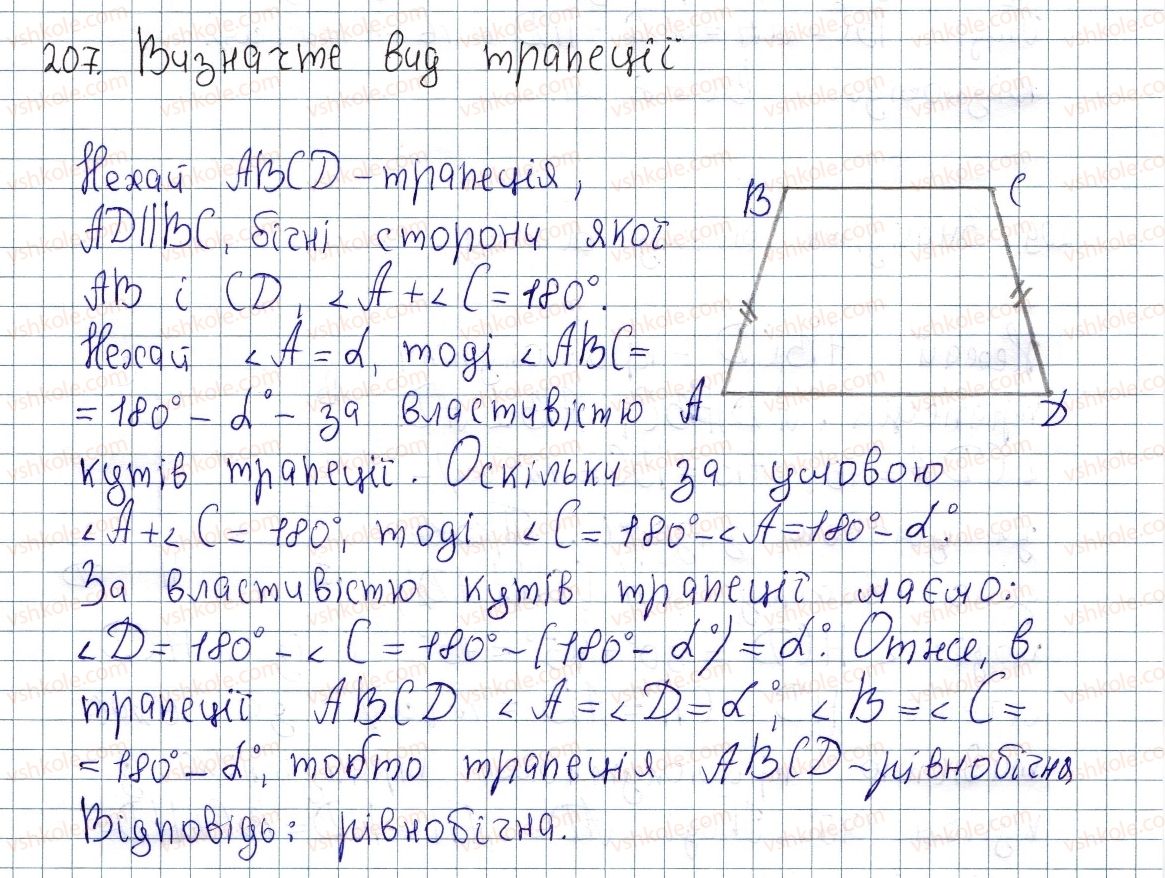 207. Визначте вид трапеції
Нехай ABCD – трапеція,
AD||BC, бічні сторони якої
AB і CD, ∠A+∠C=180°.
Нехай ∠A=α, тоді ∠ABC=
=180°-α° - за властивістю
кутів трапеції. Оскільки за умовою
∠A+∠C=180°, тоді ∠C=180°-∠A=180°-α°.
За властивістю кутів трапеції маємо:
∠D=180°-∠C=180°-(180°-α°)=α°. Отже, в
трапеції ABCD ∠A=∠D=α°, ∠B=∠C=
=180°-α°, тобто трапеція ABCD – рівнобічна
Відповідь: рівнобічна.
B C
A D
vshkole.com